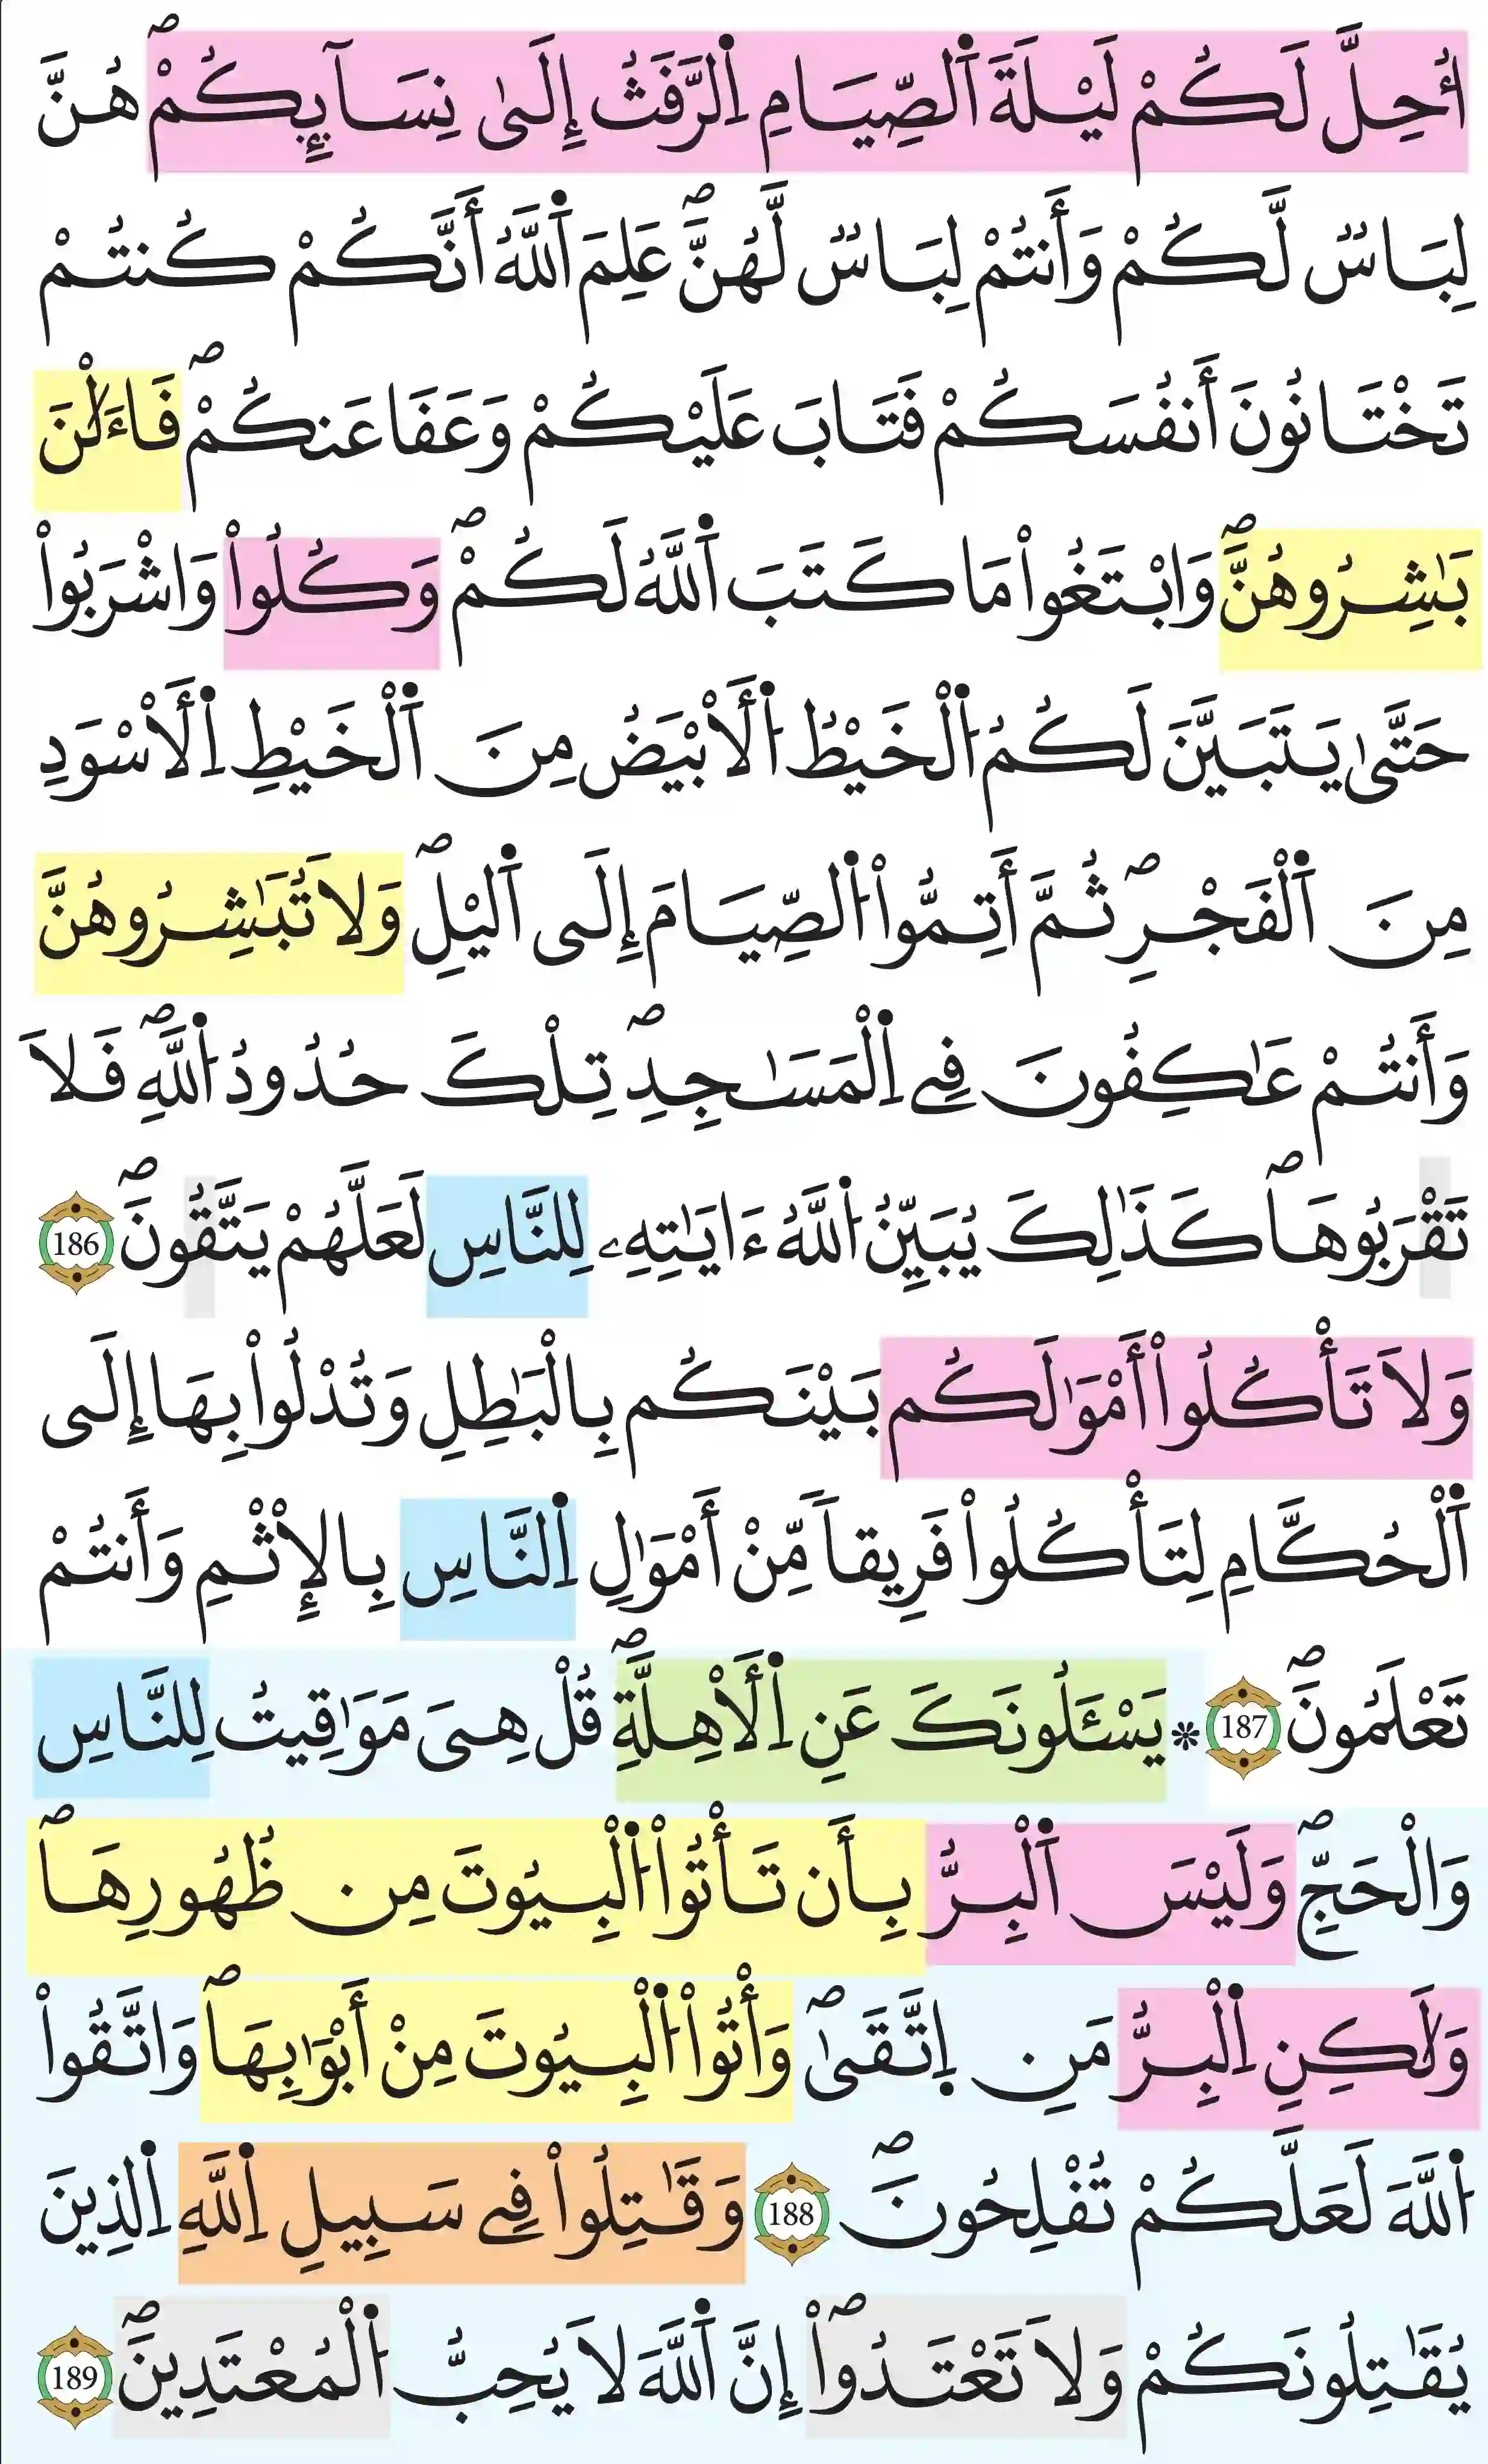 اُحِلَّ لَكُمْ لَيْلَةَ اَ۬لصِّيَامِ اِ۬لرَّفَثُ إِلَىٰ نِسَآئِكُمْۖ هُنَّ
لِبَاسٞ لَّكُمْ وَأَنتُمْ لِبَاسٞ لَّهُنَّۖ عَلِمَ اَ۬للَّهُ أَنَّكُمْ كُنتُمْ
تَخْتَانُونَ أَنفُسَكُمْ فَتَابَ عَلَيْكُمْ وَعَفَا عَنكُمْۖ فَاءَلَٰنَ
بَٰشِرُوهُنَّۖ وَابْتَغُواْ مَا كَتَبَ اَ۬للَّهُ لَكُمْۖ وَكُلُواْ وَاشْرَبُواْ
حَتَّىٰ يَتَبَيَّنَ لَكُمُ اُ۬لْخَيْطُ اُ۬لَابْيَضُ مِنَ اَ۬لْخَيْطِ اِ۬لَاسْوَدِ
مِنَ اَ۬لْفَجْرِۖ ثُمَّ أَتِمُّواْ اُ۬لصِّيَامَ إِلَى اَ۬ليْلِۖ وَلَا تُبَٰشِرُوهُنَّ
وَأَنتُمْ عَٰكِفُونَ فِے اِ۬لْمَسَٰجِدِۖ تِلْكَ حُدُودُ اُ۬للَّهِۖ فَلَا
تَقْرَبُوهَاۖ كَذَٰلِكَ يُبَيِّنُ اُ۬للَّهُ ءَايَٰتِهِۦ لِلنَّاسِ لَعَلَّهُمْ يَتَّقُونَۖ 186
وَلَا تَأْكُلُواْ أَمْوَٰلَكُم بَيْنَكُم بِالْبَٰطِلِ وَتُدْلُواْ بِهَا إِلَى
اَ۬لْحُكَّامِ لِتَأْكُلُواْ فَرِيقاٗ مِّنْ أَمْوَٰلِ اِ۬لنَّاسِ بِالْإِثْمِ وَأَنتُمْ
تَعْلَمُونَۖ 187 * يَسْـَٔلُونَكَ عَنِ اِ۬لَاهِلَّةِۖ قُلْ هِىَ مَوَٰقِيتُ لِلنَّاسِ
وَالْحَجِّۖ وَلَيْسَ اَ۬لْبِرُّ بِأَن تَأْتُواْ اُ۬لْبِيُوتَ مِن ظُهُورِهَاۖ
وَلَٰكِنِ اِ۬لْبِرُّ مَنِ اِ۪تَّقَىٰۖ وَأْتُواْ اُ۬لْبِيُوتَ مِنْ أَبْوَٰبِهَاۖ وَاتَّقُواْ
اُ۬للَّهَ لَعَلَّكُمْ تُفْلِحُونَۖ 188 وَقَٰتِلُواْ فِے سَبِيلِ اِ۬للَّهِ اِ۬لذِينَ
يُقَٰتِلُونَكُمْ وَلَا تَعْتَدُوٓاْۖ إِنَّ اَ۬للَّهَ لَا يُحِبُّ اُ۬لْمُعْتَدِينَۖ 189